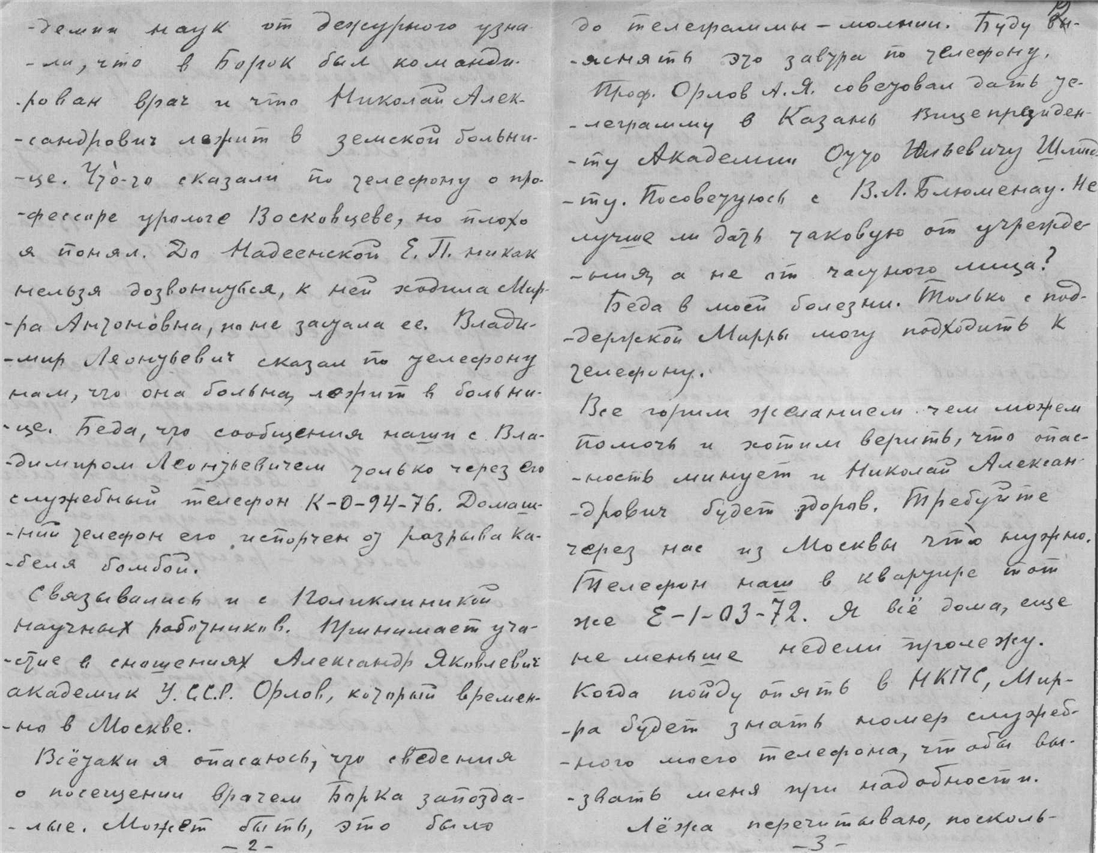 -демии наук от дежурного узна-
-ли, что в Борок был команди-
-рован врач и что Николай Алек-
-сандрович лежит в земской больни-
-це. Что-то сказали по телефону о про-
-фессоре урологе Восковцеве, но плохо
я понял. До Надеенской Е.П. никак
нельзя дозвониться, к ней ходила Мир-
-ра Антоновна, но не застала ее. Влади-
-мир Леонтьевич сказал по телефону
нам, что она больна, лежит в больни-
-це. Беда, что сообщения наши с Вла-
-димиром Леонтьевичем только через его
служебный телефон К-0-94-76. Домаш-
-ний телефон его испорчен от разрыва ка-
-беля бомбой.
Связывались и с Поликлиникой
научных работников. Принимает уча-
-стие в сношениях Александр Яковлевич
академик У.С.С.Р. Орлов, который времен-
-но в Москве.
Всётаки я опасаюсь, что сведения
о посещении врачем Борка запозда-
-лые. Может быть, это было
-2-
до телеграммы-молнии. Буду вы-
-яснять это завтра по телефону.
Проф. Орлов А.Я. советовал дать те-
-леграмму в Казань Вицепрезиден-
-ту Академии Отто Юльевичу Шмид-
-ту. Посоветуюсь с В.Л. Блюменау. Не
лучше ли дать таковую от учрежде-
-ния, а не от частного лица?
Беда в моей болезни. Только с под-
-держкой Мирры могу подходить к
телефону.
Все горим желанием чем можем
помочь и хотим верить, что опас-
-ность минует и Николай Алексан-
-дрович будет здоров. Требуйте
через нас из Москвы что нужно.
Телефон наш в квартире тот
же Е-1-03-72. Я всё дома, еще
не меньше недели пролежу.
Когда пойду опять в НКПС, Мир-
-ра будет знать номер служеб-
-ного моего телефона, чтобы вы-
-звать меня при надобности.
Лёжа перечитываю, посколь-
-3-